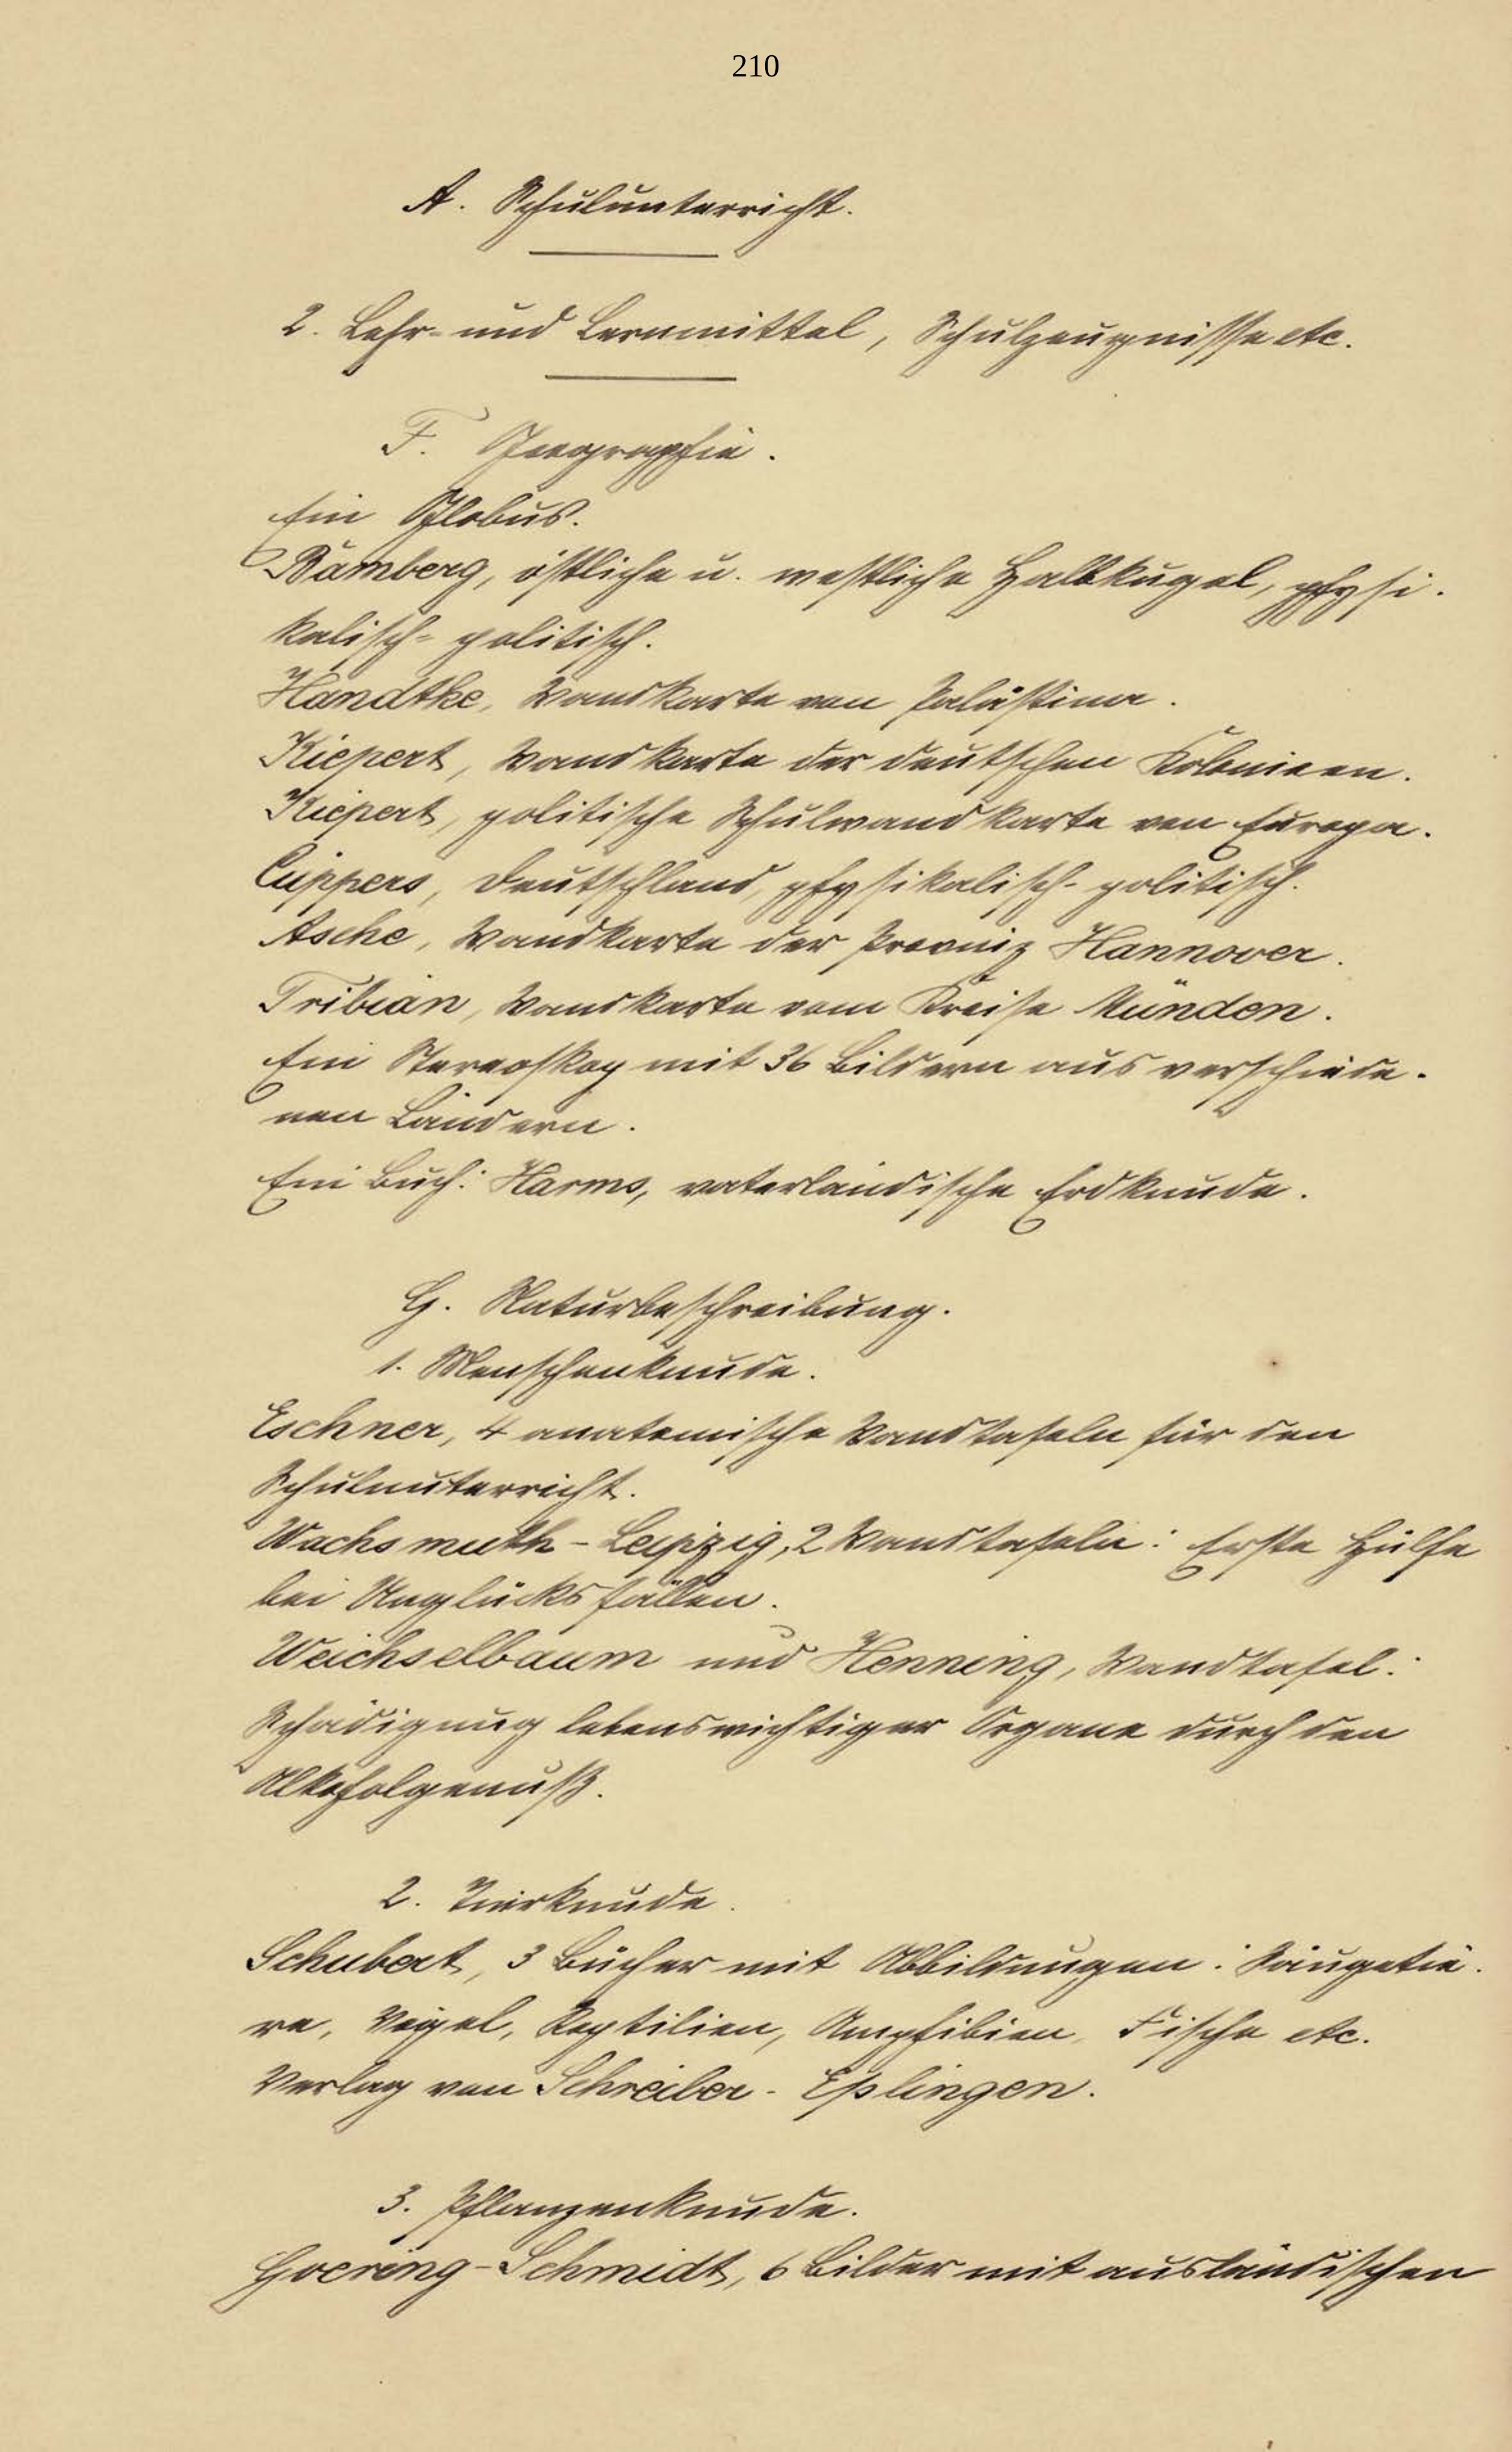 210
A. Schulunterricht.
2. Lehr- und Lernmittel, Schulzeugnisse etc.
F. Geographie.
Ein Globus.
Bamberg, östliche u. westliche Halbkugel, physi-
kalisch-politisch.
Handtke, Wandkarte von Palästina.
Kiepert, Wandkarte der deutschen Kolonieen.
Kiepert, politische Schulwandkarte von Europa.
Cüppers, Deutschland, physikalisch-politisch.
Asche, Wandkarte der Provinz Hannover.
Tribian, Wandkarte vom Kreise Münden.
Ein Stereoskop mit 36 Bildern aus verschiede-
nen Ländern.
Ein Buch: Harms, vaterländische Erdkunde.
G. Naturbeschreibung.
1. Menschenkunde.
Eschner, 4 anatomische Wandtafeln für den
Schulunterricht.
Wachsmuth-Leipzig, 2 Wandtafeln: Erste Hülfe
bei Unglücksfällen.
Weichselbaum und Henning, Wandtafel:
Schädigung lebenswichtiger Organe durch den
Alkoholgenuß.
2. Tierkunde.
Schubert, 3 Bücher mit Abbildungen: Säugetie-
re, Vögel, Reptilien, Amphibien, Fische etc.
Verlag von Schreiber-Eßlingen.
3. Pflanzenkunde.
Goering-Schmidt, 6 Bilder mit ausländischen